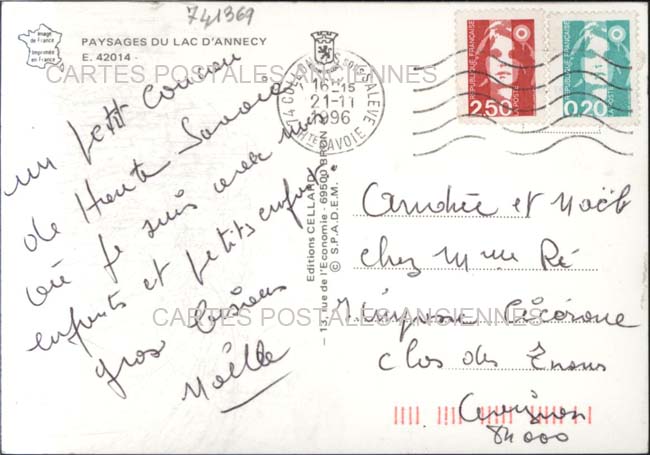 741369
Image de France
Imprimée en France
PAYSAGES DU LAC D'ANNECY
E. 42014
CARTES POSTALES ANCIENNES
74 COLLONGES SOUS SALEVE
16-15
21-11
1996
HTE SAVOIE
REPUBLIQUE FRANÇAISE
2,50
LA POSTE
REPUBLIQUE FRANÇAISE
0,20
LA POSTE
un petit coucou
de Haute Savoie
où je suis avec mes
enfants et petits enfants.
gros bisous
Noëlle
Editions CELLARD
13, rue de l'Economie - 69500 BRON
© S.P.A.D.E.M.
et Noël
chez Mme Ré
impasse
Clos des
CARTES POSTALES ANCIENNES
Avignon
84000